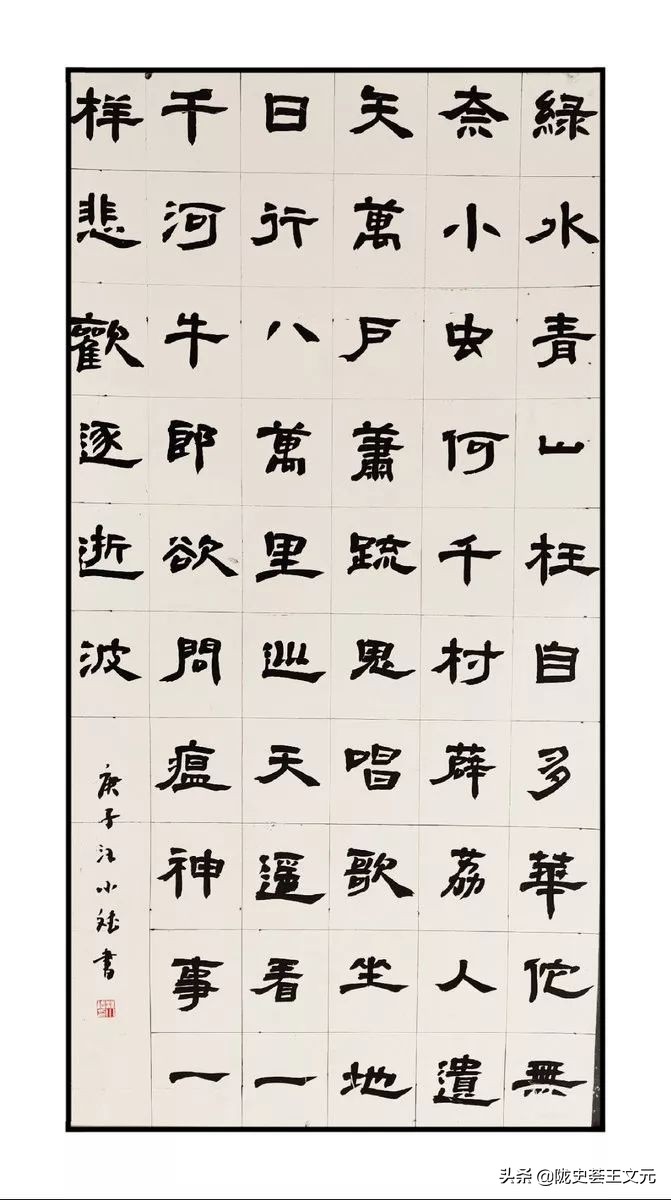 綠水青山枉自多華佗無
奈小虫何千村薜荔人遺
矢萬戶蕭疏鬼唱歌坐地
日行八萬里巡天遥看一
千河牛郎欲問瘟神事一
样悲歡逐逝波
庚子汪小書
头条 @陇史荟王文元